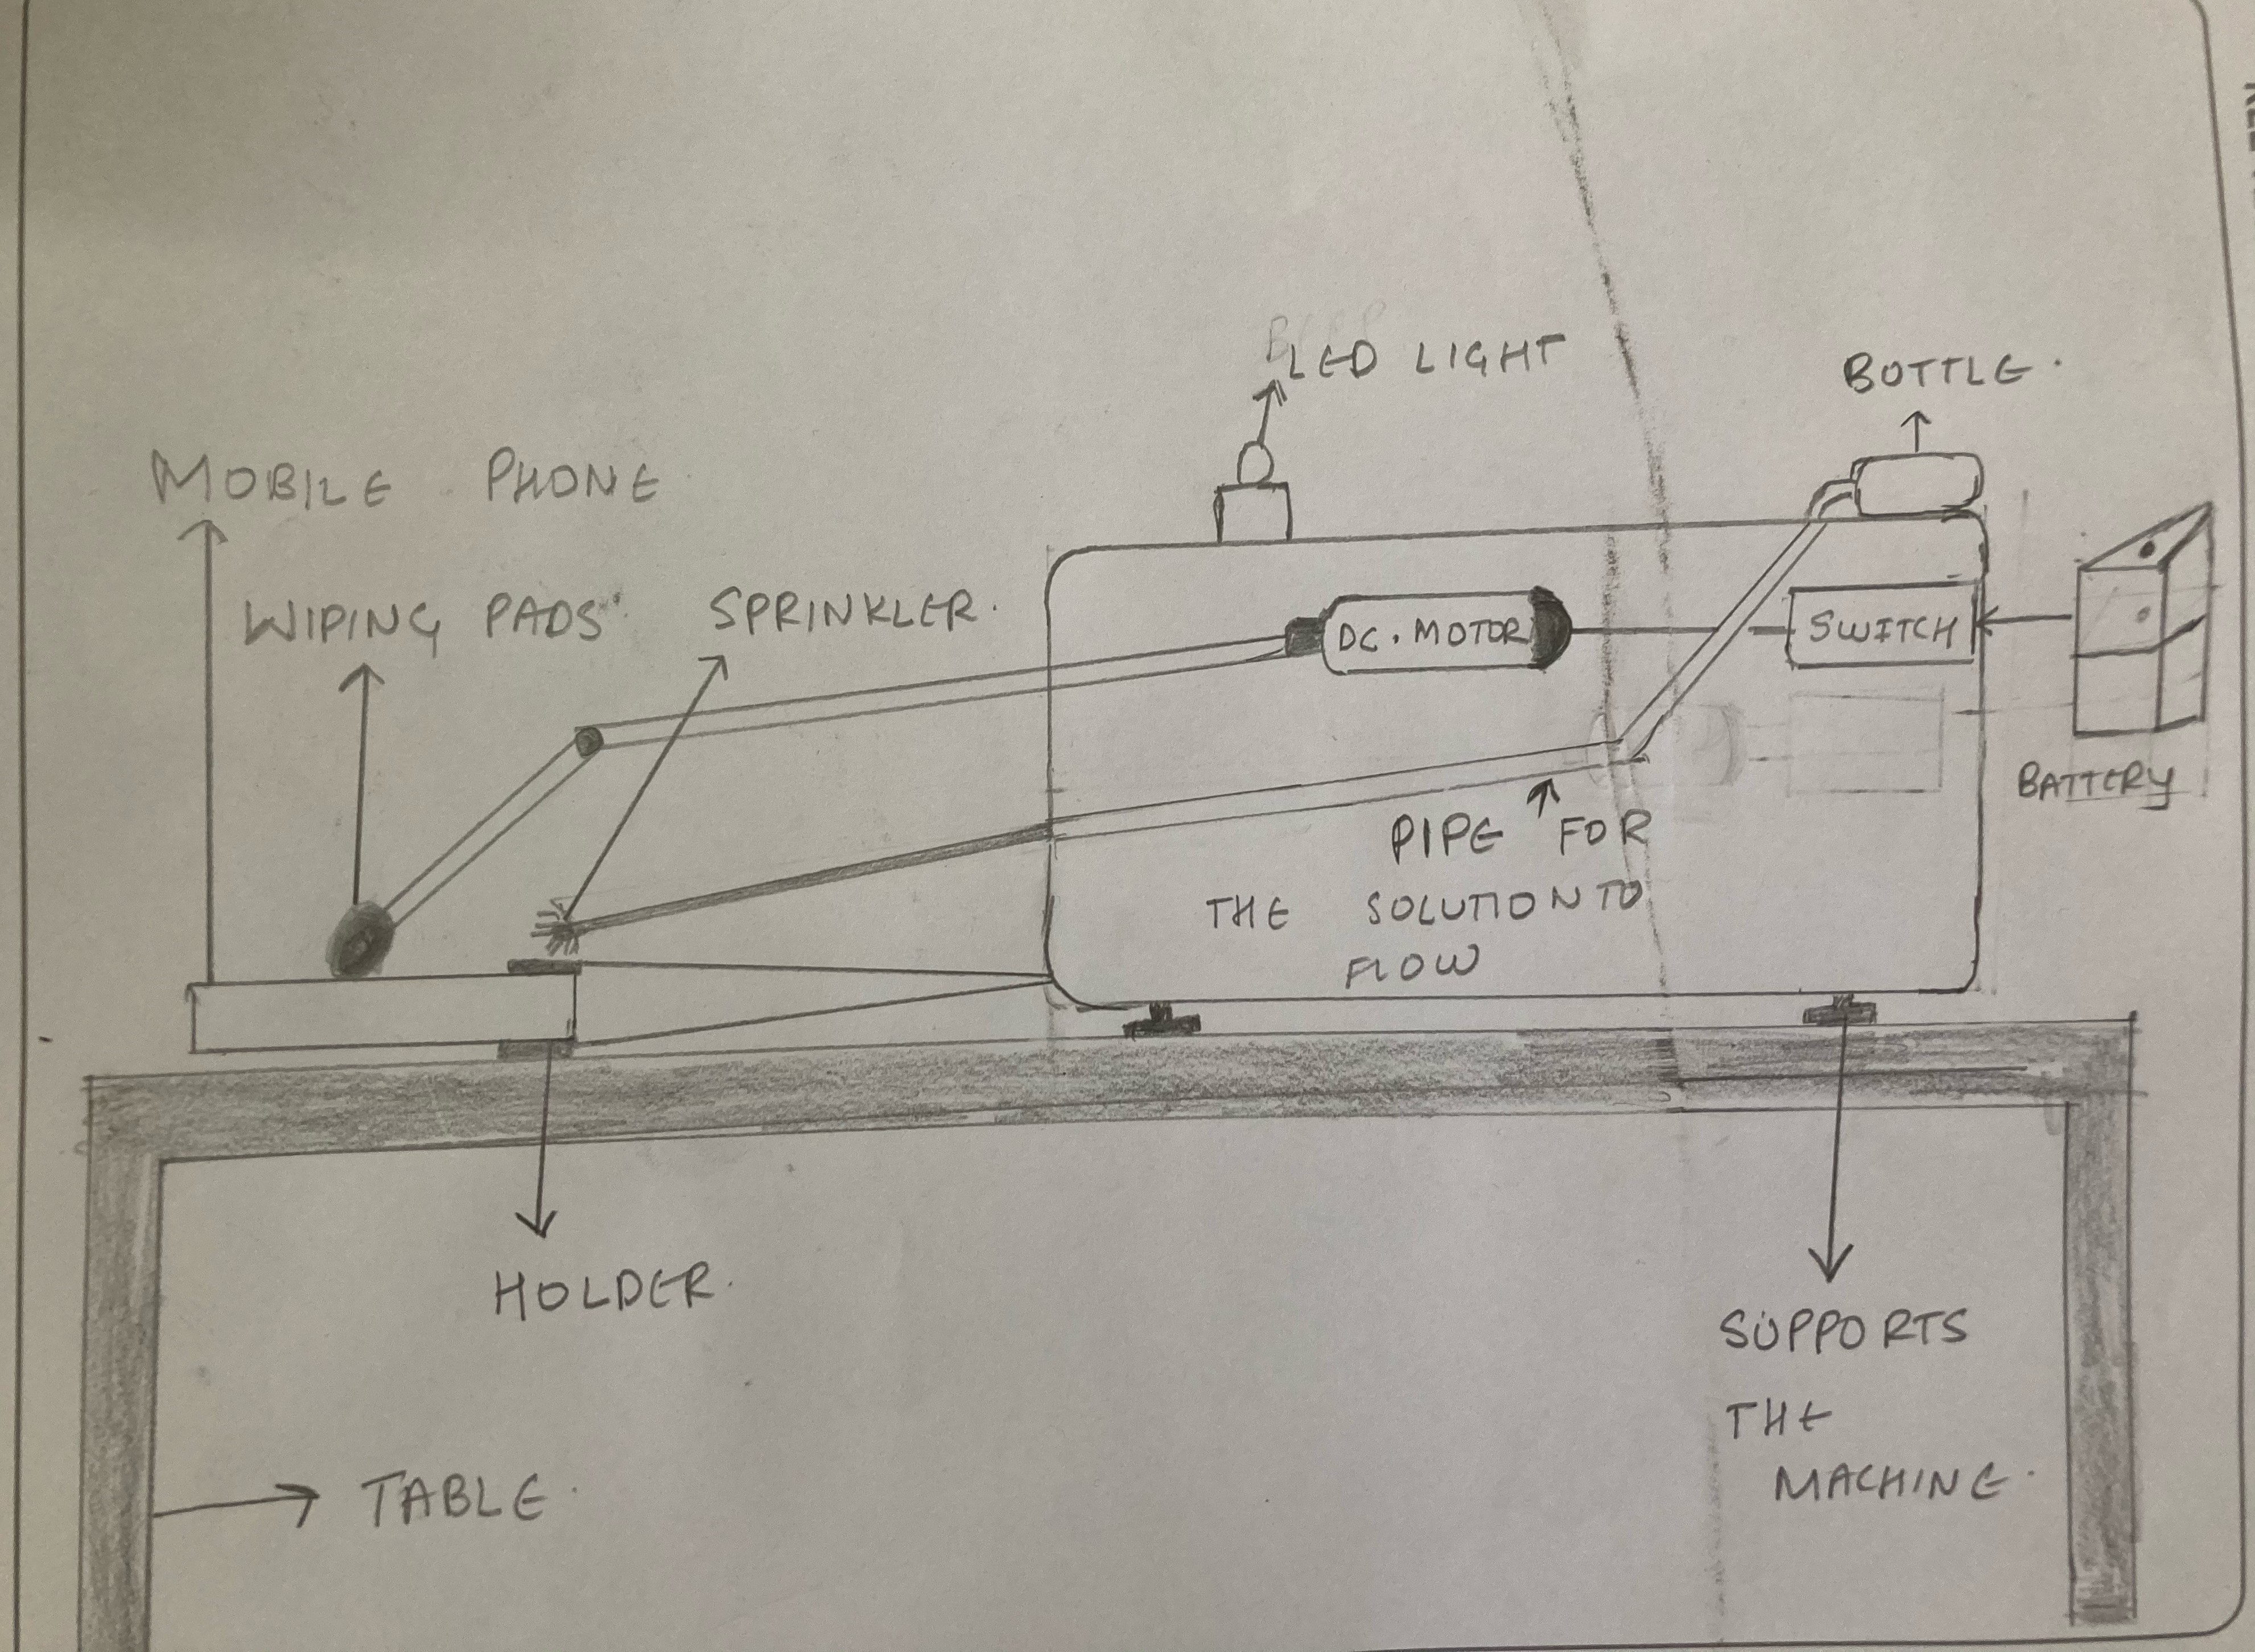 LED LIGHT
BOTTLE.
MOBILE PHONE
WIPING PADS
SPRINKLER.
DC. MOTOR
SWITCH
BATTERY
PIPE FOR
THE SOLUTION TO
FLOW
HOLDER.
SUPPORTS
THE
MACHINE.
TABLE.